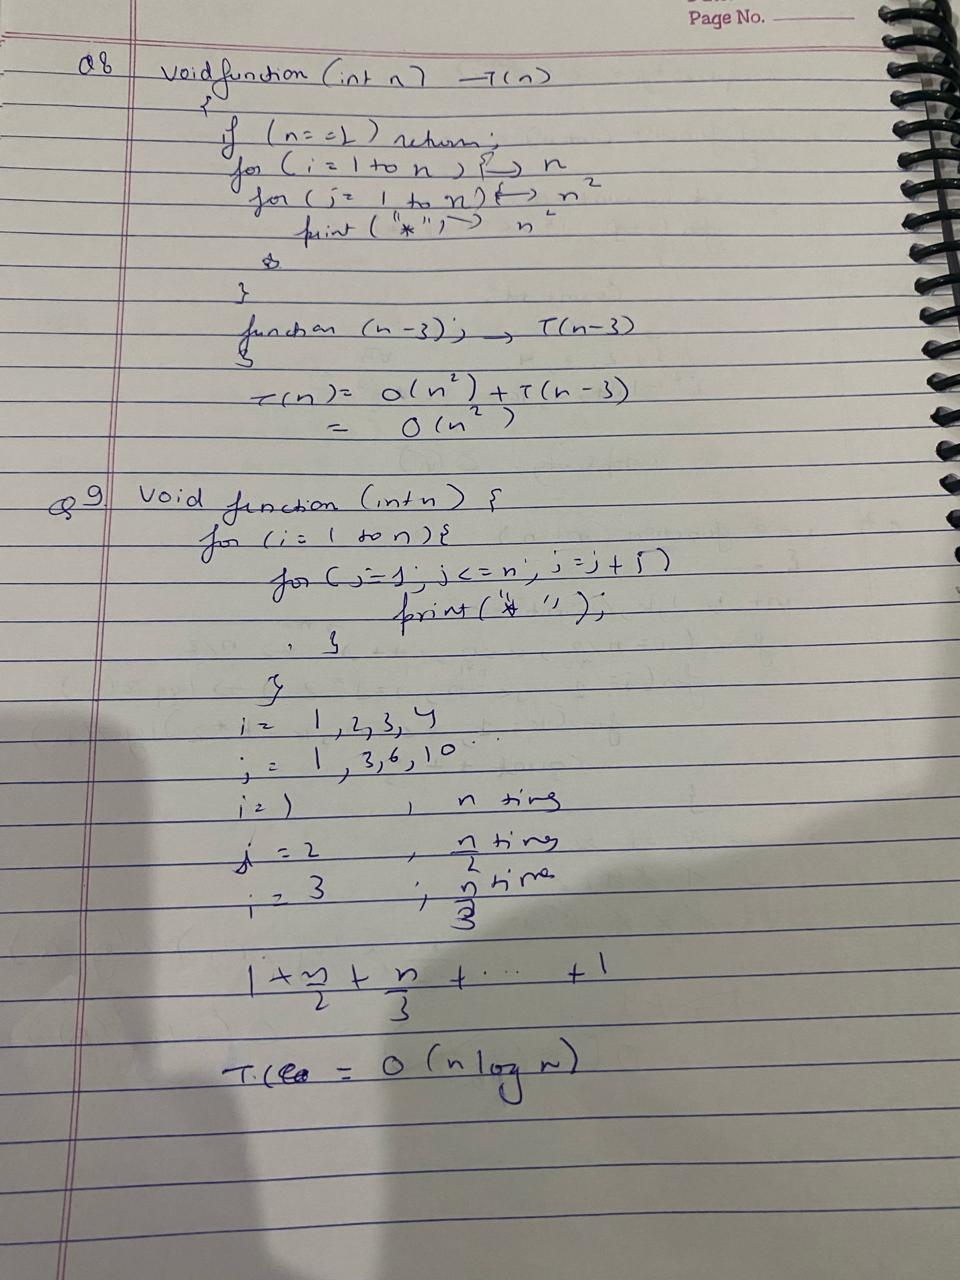 Page No.
Q8 void function (int n) → T(n)
{
if (n = = 1) return;
for (i = 1 to n) { → n
for (j = 1 to n) { → n²
print ("*"; → n²
}
}
function (n-3); → T(n-3)
}
T(n) = O(n²) + T(n-3)
= O(n²)
Q9. void function (int n) {
for (i = 1 to n) {
for (j = 1; j <= n; j = j + i)
print ("*");
}
}
i = 1, 2, 3, 4
j = 1, 3, 6, 10 ..
i = 1 , n times
j = 2 , n/2 times
i = 3 , n/3 times
1 + n/2 + n/3 + .... + 1
T.C = O (n log n)